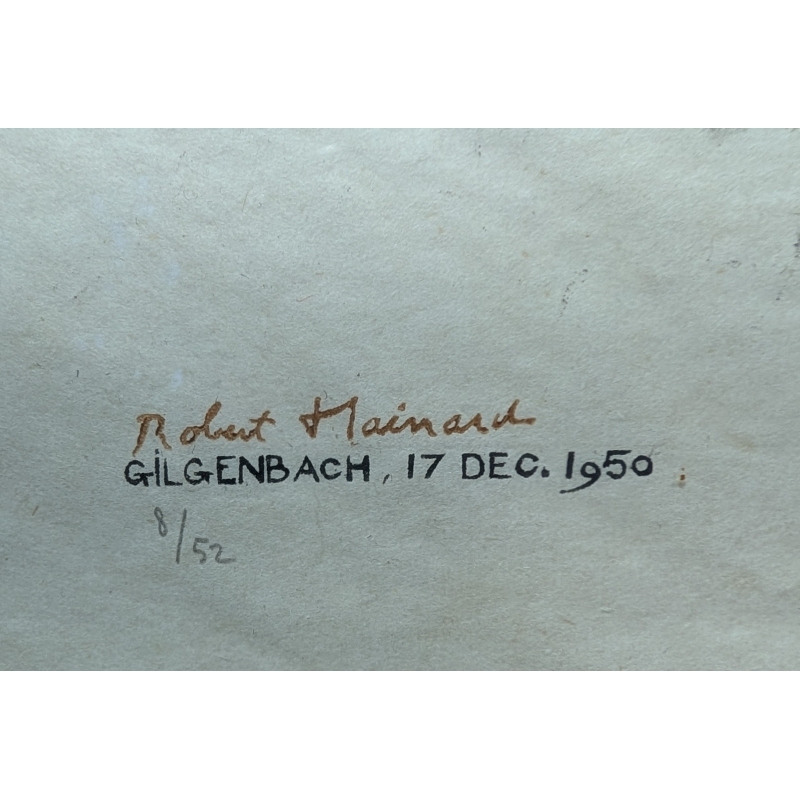 Robert Hainard
GiLGENBACH, 17 DEC. 1950
8/52